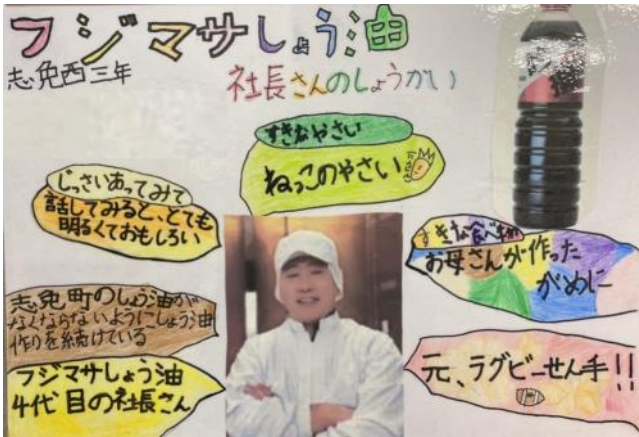 フジマサしょう油
志免西三年
社長さんのしょうかい
すきなやさい
ねっこのやさい
じっさいあってみて
話してみると、とても
明るくておもしろい
すきな食べ物
お母さんが作った
がめに
志免町のしょう油が
なくならないようにしょう油
作りを続けている
フジマサしょう油
4代目の社長さん
元、ラグビーせん手!!